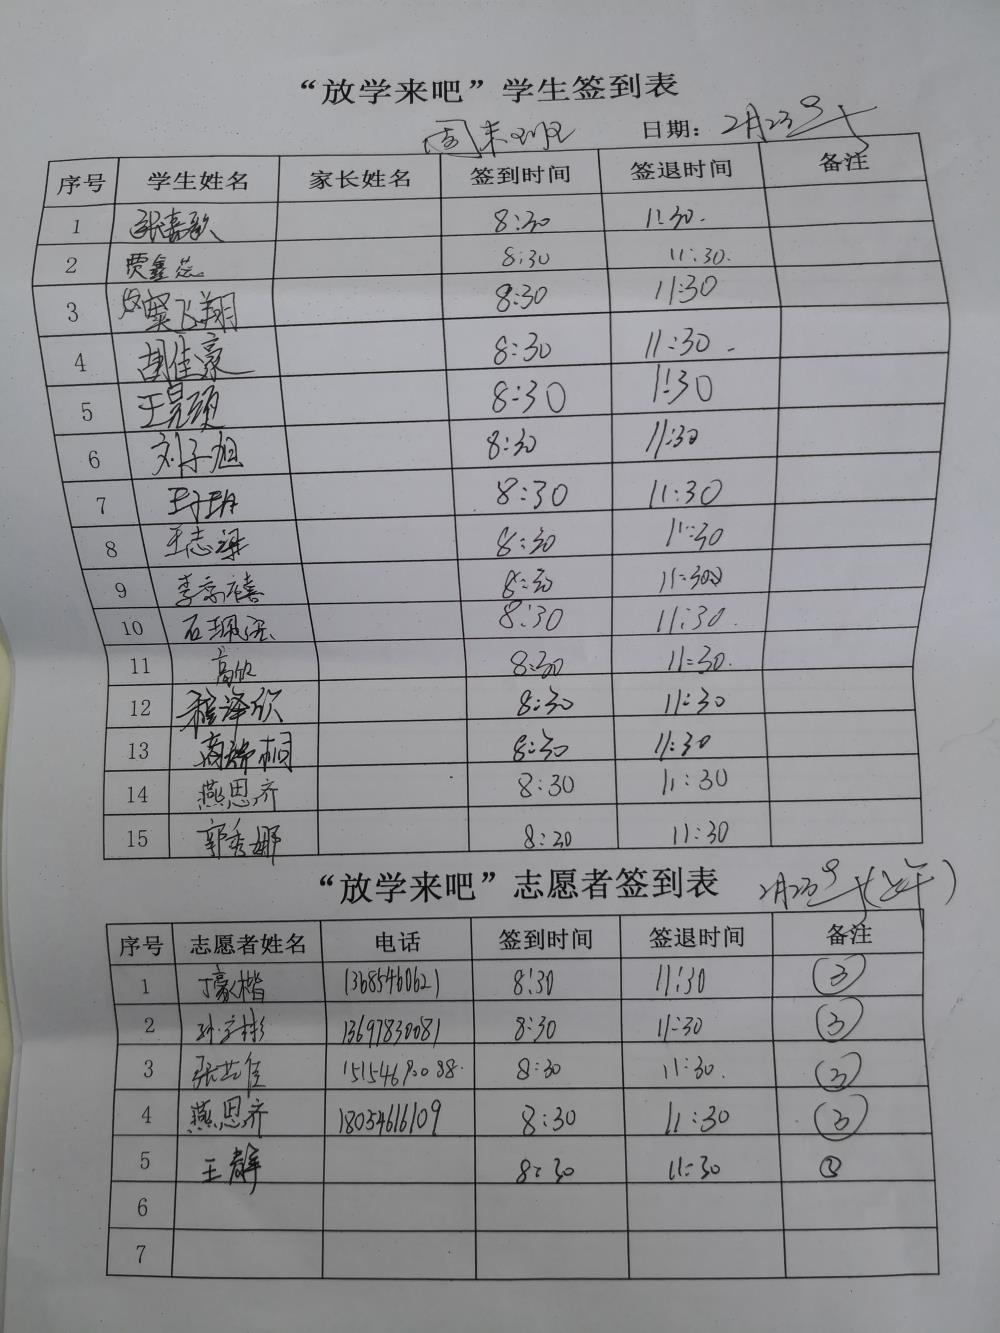 “放学来吧”学生签到表
周末班 日期：2月23号上午
序号 学生姓名 家长姓名 签到时间 签退时间 备注
1 张嘉歌 8:30 11:30.
2 贾鑫蕊 8:30 11:30.
3 樊飞翔 8:30 11:30
4 胡佳豪 8:30 11:30
5 王昊硕 8:30 11:30
6 刘子旭 8:30 11:30
7 8:30 11:30
8 王志谦 8:30 11:30
9 8:30 11:30
10 8:30 11:30
11 8:30 11:30.
12 程泽欣 8:30 11:30
13 商瑞桐 8:30 11:30
14 燕思齐 8:30 11:30
15 郭秀娜 8:30 11:30
“放学来吧”志愿者签到表 2月23号上午(上午)
序号 志愿者姓名 电话 签到时间 签退时间 备注
1 丁豪楷 13685460621 8:30 11:30 ③
2 孙彦彬 13697830081 8:30 11:30 ③
3 张芸佳 8:30 11:30. ③
4 燕思齐 18054616109 8:30 11:30 ③
5 王静 8:30 11:30 ③
6
7